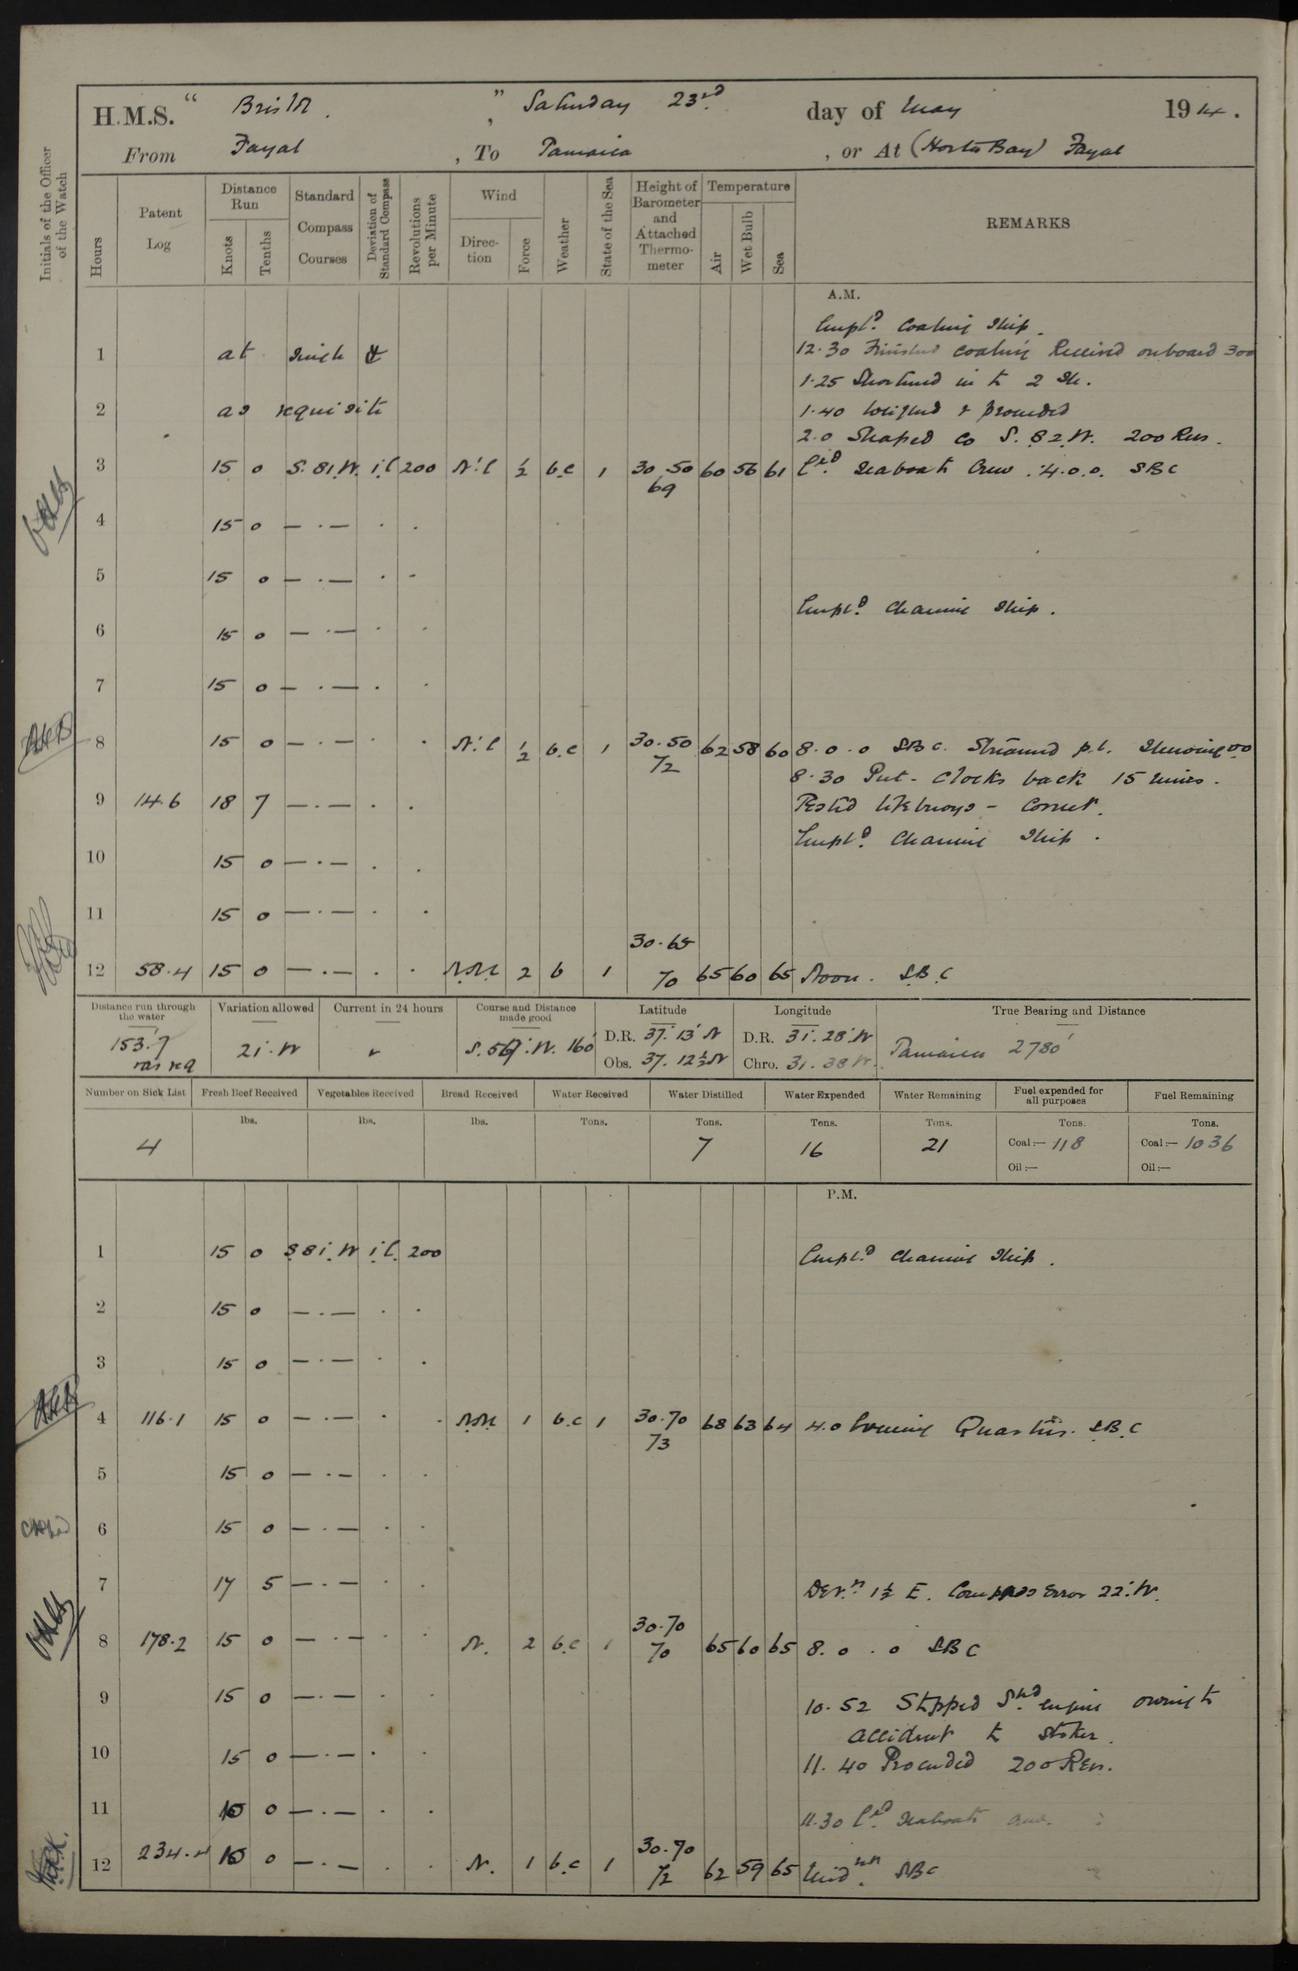 H.M.S. " Bristol. ", Saturday 23rd. day of May 1914.
From Fayal, To Jamaica, or At (Horta Bay) Fayal
Initials of the Officer of the Watch
Hours Patent Log Distance Run Knots Tenths Standard Compass Courses Deviation of Standard Compass Revolutions per Minute Wind Direction Force Weather State of the Sea Height of Barometer and Attached Thermometer Temperature Air Wet Bulb Sea REMARKS
A.M.
Empld. Coaling Ship.
1 at single & 12.30 Finished coaling Received onboard 300
1.25 Shortened in to 2 Sh.
2 as requisite 1.40 Weighed & proceeded
2.0 Shaped Co S. 82. W. 200 Revs.
3 15 0 S. 81. W. 1. E 200 N'E 1/2 b.c 1 30.50 69 60 56 61 Exd. Seaboats Crew. 4.0.0. SBC
4 15 0 — . — . .
5 15 0 — . — . .
Empld. Cleaning Ship.
6 15 0 — . — . .
7 15 0 — . — . .
8 15 0 — . — . . N'E 1/2 b.c 1 30.50 72 62 58 60 8.0.0 SBC.
8.30 Put clocks back 15 mins.
9 14.6 18 7 — . — . . Tested lifebuoys - Correct.
Empld. Cleaning Ship.
10 15 0 — . — . .
11 15 0 — . — . .
12 58.4 15 0 — . — . . NNE 2 b 1 30.65 70 65 60 65 Noon. SBC
Distance run through the water Variation allowed Current in 24 hours Course and Distance made good Latitude Longitude True Bearing and Distance
153.7 21. W D.R. 37. 13' N D.R. 31. 28' W. Jamaica 2780'
160' Obs. 37. 12 1/2 N Chro. 31. 38 W.
Number on Sick List Fresh Beef Received Vegetables Received Bread Received Water Received Water Distilled Water Expended Water Remaining Fuel expended for all purposes Fuel Remaining
lbs. lbs. lbs. Tons. Tons. Tons. Tons. Tons. Tons.
4 7 16 21 Coal:— 118 Coal:— 1036
Oil:— Oil:—
P.M.
1 15 0 S 81. W 1. E. 200 Empld. Cleaning Ship.
2 15 0 — . — . .
3 15 0 — . — . .
4 116.1 15 0 — . — . . NNE 1 b.c 1 30.70 73 68 63 64 4.0 Evening Quarters. SBC
5 15 0 — . — . .
6 15 0 — . — . .
7 17 5 — . — . . Devn. 1 1/2 E. Compass Error 22. W.
8 178.2 15 0 — . — . . N. 2 b.c 1 30.70 70 65 60 65 8.0.0 SBC
9 15 0 — . — . .
10.52 Stopped Stbd. engine owing to
accident to stoker.
10 15 0 — . — . . 11.40 Proceeded 200 Revs.
11 15 0 — . — . . 11.30 Exd. Seaboats Crew.
12 234.4 15 0 — . — . . N. 1 b.c 1 30.70 72 62 59 65 Midnt. SBC